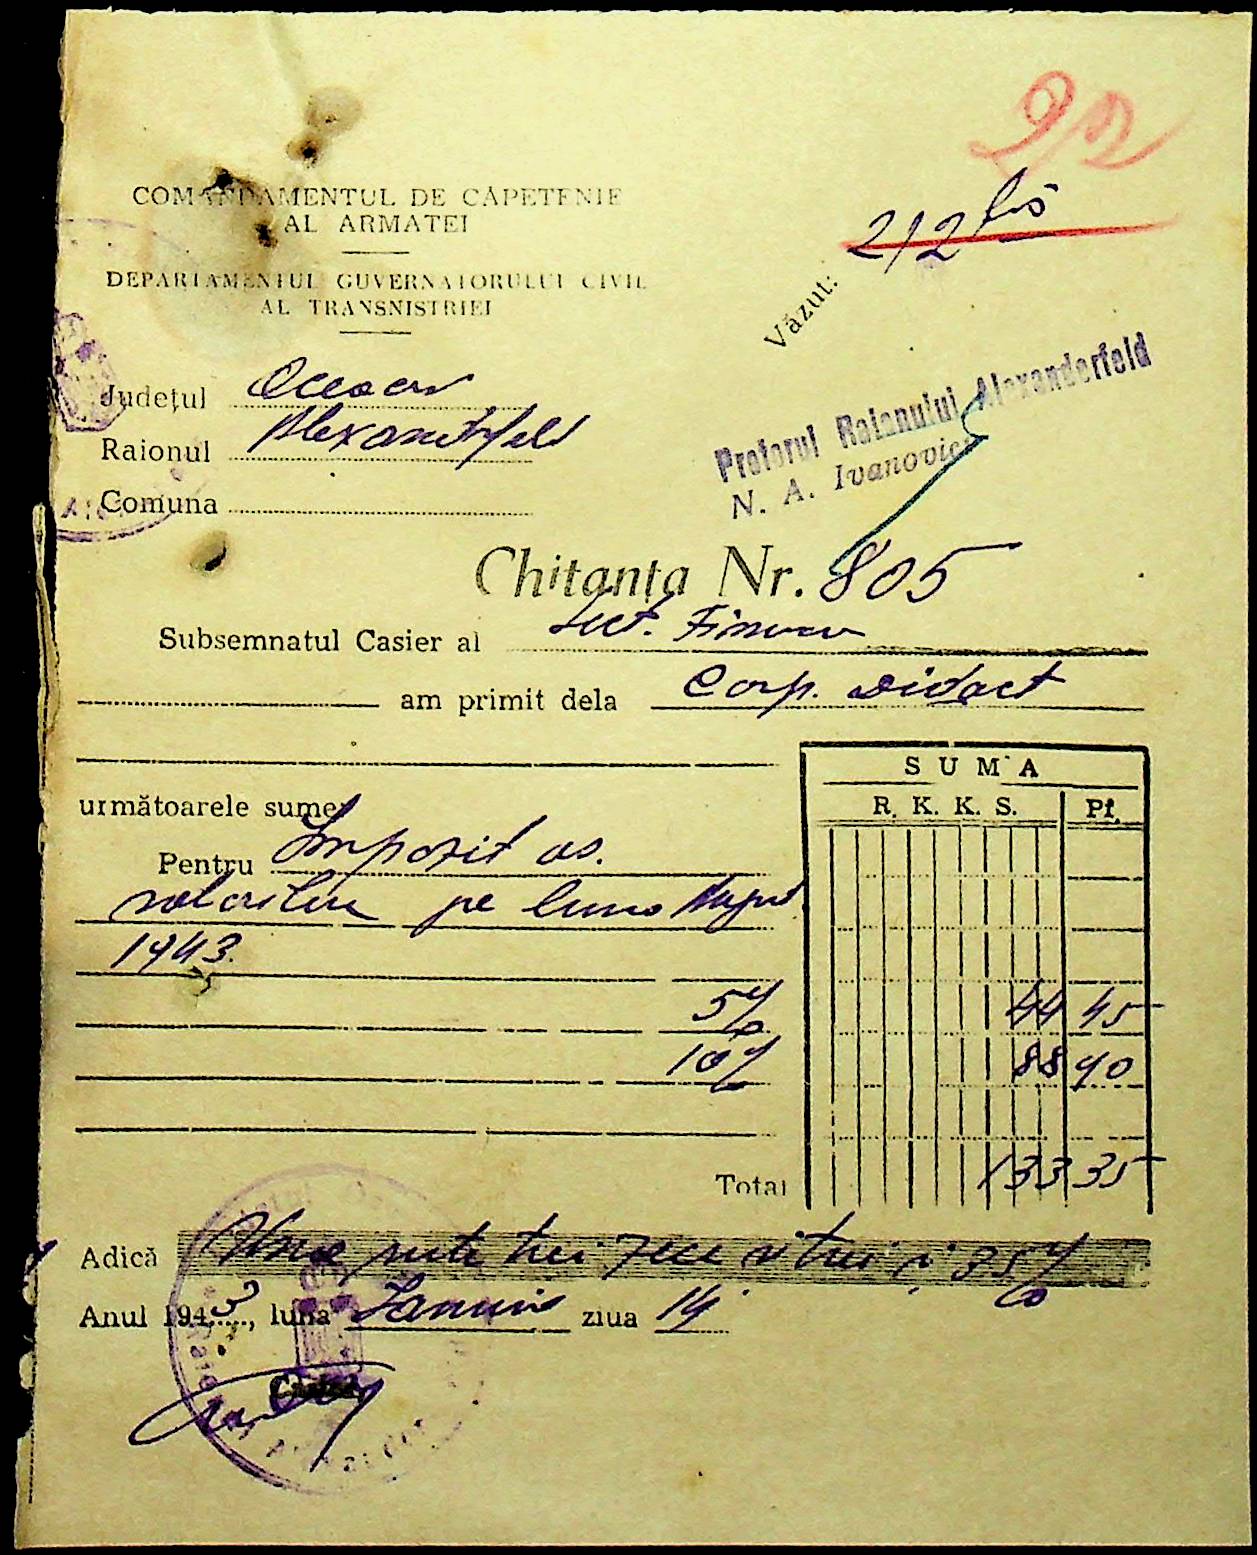 212 bis
COMANDAMENTUL DE CĂPETENIE
AL ARMATEI
DEPARTAMENTUL GUVERNATORULUI CIVIL
AL TRANSNISTRIEI
Văzut:
Pretorul Raionului Alexanderfeld
N. A. Ivanovici
Județul
Raionul Alexanderfeld
Comuna
Chitanța Nr. 805
Subsemnatul Casier al Sect. Financiar
am primit dela Corp. Didact
următoarele sume
Pentru Impozit as.
salariilor pe luna August
1943.
SUMA
R. K. K. S. Pf.
5% 44 45
10% 88 90
Total 133 35
Adică Una sute trei zece si trei și 35%
Anul 1943, luna Ianuarie ziua 14